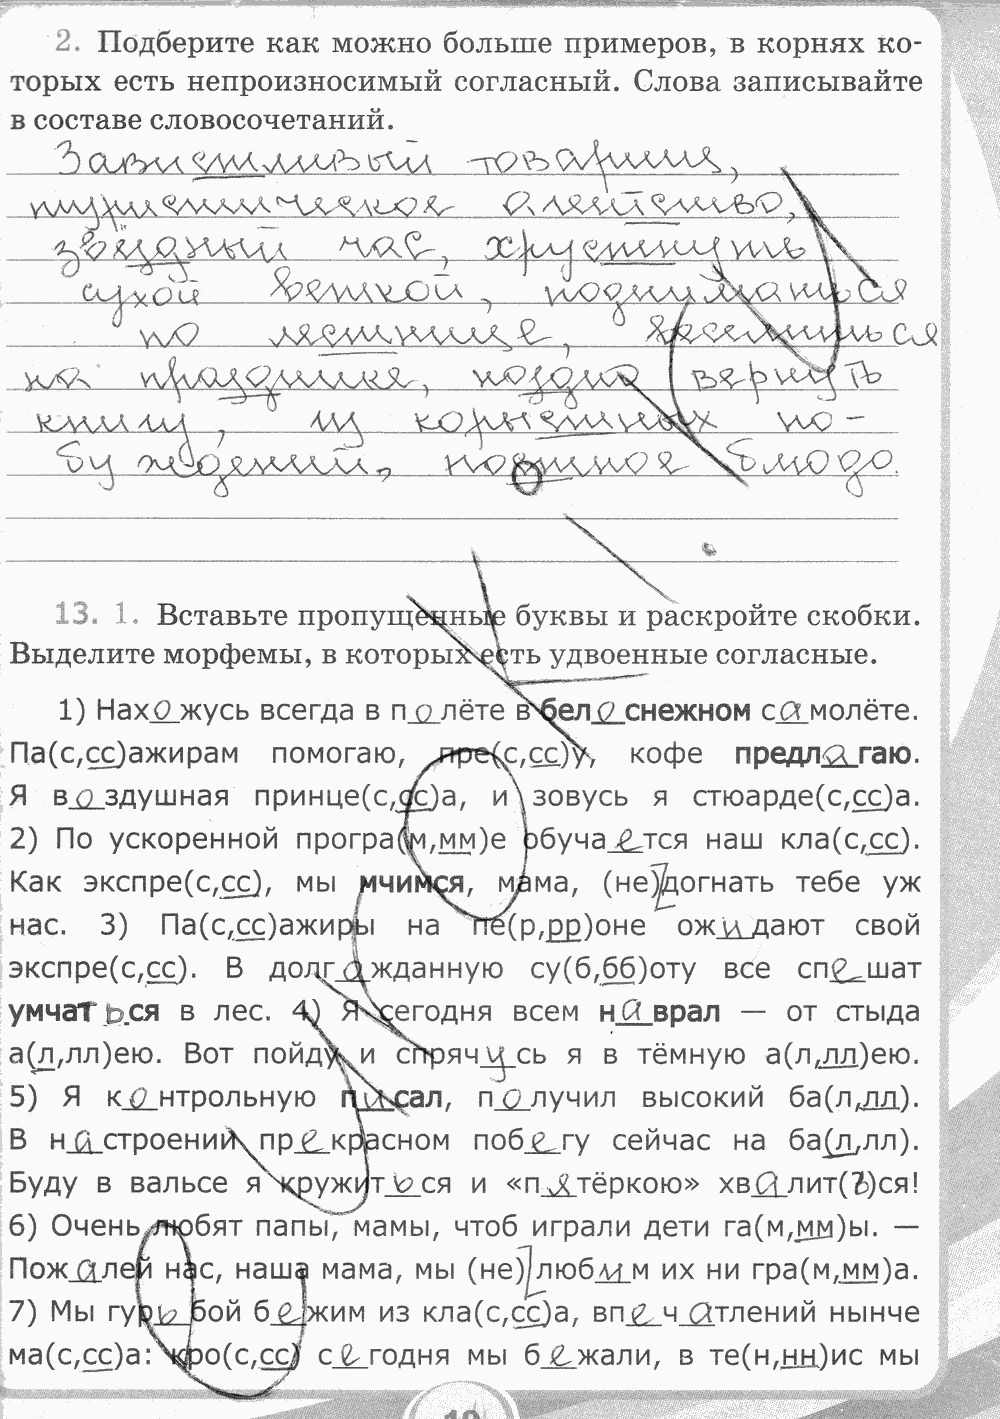 2. Подберите как можно больше примеров, в корнях ко-
торых есть непроизносимый согласный. Слова записывайте
в составе словосочетаний.
Завистливый товарищ,
звёздный час, хрустнуть
сухой веткой, подниматься
по лестнице, веселиться
на празднике, поздно вернуть
книгу, из корыстных по-
буждений, постное блюдо.
13. 1. Вставьте пропущенные буквы и раскройте скобки.
Выделите морфемы, в которых есть удвоенные согласные.
1) Нахожусь всегда в полёте в белоснежном самолёте.
Па(с,сс)ажирам помогаю, пре(с,сс)у, кофе предлагаю.
Я воздушная принце(с,сс)а, и зовусь я стюарде(с,сс)а.
2) По ускоренной програ(м,мм)е обучается наш кла(с,сс).
Как экспре(с,сс), мы мчимся, мама, (не)догнать тебе уж
нас. 3) Па(с,сс)ажиры на пе(р,рр)оне ожидают свой
экспре(с,сс). В долгожданную су(б,бб)оту все спешат
умчаться в лес. 4) Я сегодня всем наврал — от стыда
а(л,лл)ею. Вот пойду и спрячусь я в тёмную а(л,лл)ею.
5) Я контрольную писал, получил высокий ба(л,лл).
В настроении прекрасном побегу сейчас на ба(л,лл).
Буду в вальсе я кружиться и «пятёркою» хвалит(ь)ся!
6) Очень любят папы, мамы, чтоб играли дети га(м,мм)ы. —
Пожалей нас, наша мама, мы (не)любим их ни гра(м,мм)а.
7) Мы гурьбой бежим из кла(с,сс)а, впечатлений нынче
ма(с,сс)а: кро(с,сс) сегодня мы бежали, в те(н,нн)ис мы
19